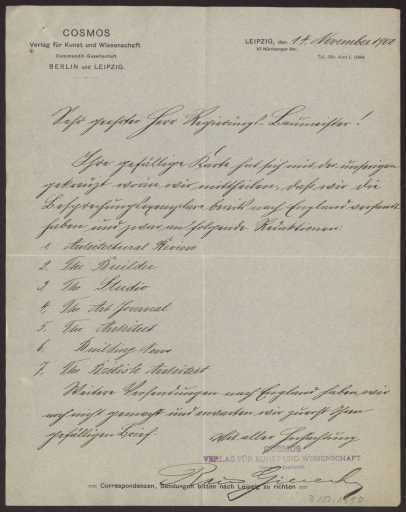 COSMOS
Verlag für Kunst und Wissenschaft
Commandit-Gesellschaft
BERLIN und LEIPZIG.
LEIPZIG, den 14. November 1900
Sehr geehrter Herr Regierungs-Baumeister!
Ihre gefällige Karte hat sich mit der unsrigen
gekreuzt worin wir mittheilen, daß wir die
Besprechungsexemplare bereits nach England versandt
haben und zwar an folgende Redaktionen:
1. Architectural Review
2. The Builder
3. The Studio
4. The Art Journal
5. The Architect
6. Building News
7. The British Architect
Weitere Versendungen nach England haben wir
noch nicht gemacht und erwarten wir zuerst Ihren
gefälligen Brief.
Mit aller Hochachtung
COSMOS
VERLAG FÜR KUNST UND WISSENSCHAFT
Correspondenzen, Sendungen bitten nach Leipzig zu richten